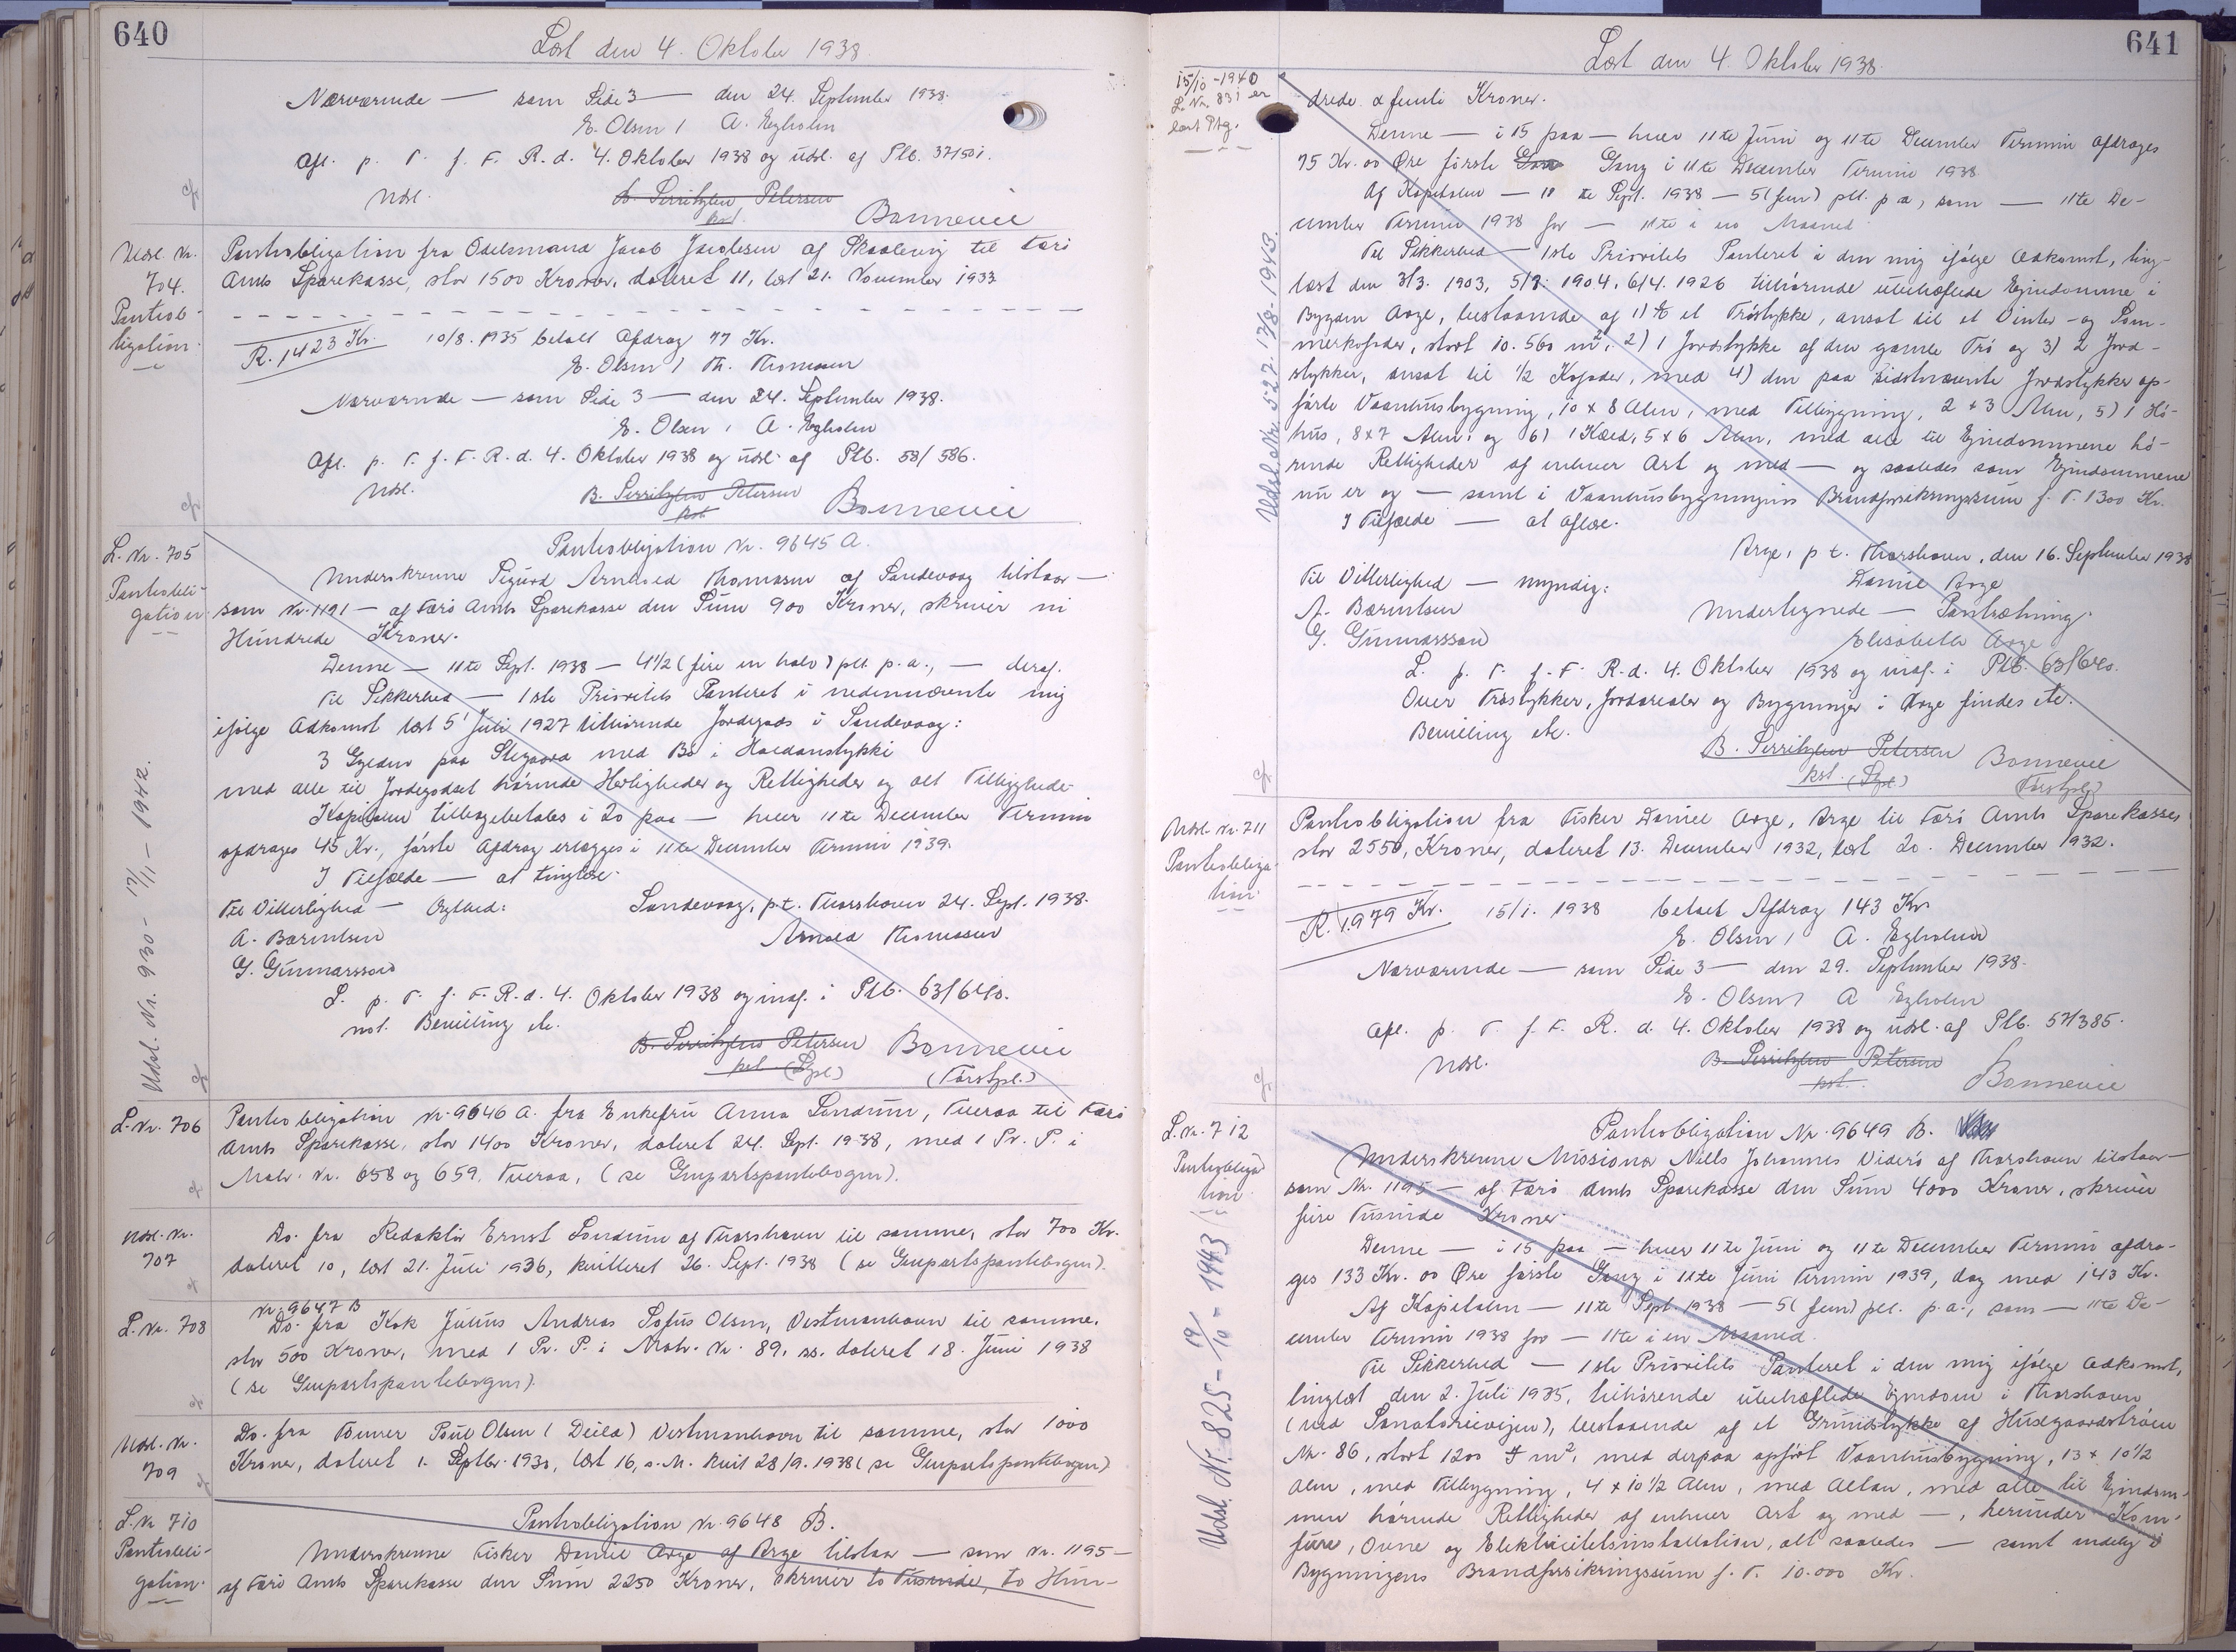 640
Læst den 4. Oktober 1938.
Nærværende — som Side 3 — den 24. September 1938.
E. Olsen / A. Egholm
Afl. p. T. f. F. R. d. 4. Oktober 1938 og udsl. af Ptb. 37/501.
Udsl.
B. Serritzlew Petersen
kst.
Bonnevie
Udsl. Nr.
704.
Pantob-
ligation
Pantobligation fra Odelsmand Jacob Jacobsen af Skaalevig til Færø
Amts Sparekasse, stor 1500 Kroner, dateret 11, læst 21. November 1933
R. 1423 Kr. 10/8. 1935 betalt Afdrag 77 Kr.
E. Olsen / Th. Thomsen
Nærværende — som Side 3 — den 24. September 1938.
E. Olsen / A. Egholm
Afl. p. T. f. F. R. d. 4. Oktober 1938 og udsl. af Ptb. 58/586.
Udsl.
B. Serritzlew Petersen
kst.
Bonnevie
L. Nr. 705
Pantobli-
gation
Udsl. Nr. 930 - 17/11 - 1942.
Pantobligation Nr. 9645 A.
Underskrevne Sigurd Arnhold Thomasen af Sandevaag tilstaar —
som Nr. 1191 — af Færø Amts Sparekasse den Sum 900 Kroner, skriver ni
Hundrede Kroner.
Denne — 11te Sept. 1938 — 4 1/2 (fire en halv) pCt. p. a., — deraf.
Til Sikkerhed — 1ste Prioritets Panteret i nedennævnte mig
ifølge Adkomst læst 5' Juli 1927 tilhørende Jordegods i Sandevaag:
3 Gylden paa Stegaard med Bø i Haldanstykki
med alle til Jordegodset hørende Herligheder og Rettigheder og alt Tilliggende
Kapitalen tilbagebetales i 20 paa — hver 11te December Termin
afdrages 45 Kr., første Afdrag erlægges i 11te December Termin 1939.
I Tilfælde — at tinglæse.
Til Vitterlighed — Ægthed:
Sandevaag, p.t. Thorshavn 24. Sept. 1938.
A. Bærentsen
Arnold Thomasen
G. Gunnarsson
L. p. T. f. F. R. d. 4. Oktober 1938 og indf. i Ptb. 63/640.
not. Bevilling etc.
B. Serritzlew Petersen
kst. (Spl.)
Bonnevie
(Forstpl.)
L. Nr. 706
Pantobligation Nr. 9646 A. fra Enkefru Anna Londum, Tveraa til Færø
Amts Sparekasse, stor 1400 Kroner, dateret 24. Sept. 1938, med 1 Pr. P. i
Matr. Nr. 658 og 659, Tveraa, (se Genpartspantebogen).
Udsl. Nr.
707
Do. fra Redaktør Ernst Londum af Thorshavn til samme, stor 700 Kr.
dateret 10, læst 21. Juli 1936, kvitteret 26. Sept. 1938 (se Genpartspantebogen).
L. Nr. 708
Nr. 9647 B
Do. fra Kok Julius Andreas Sofus Olsen, Vestmanhavn til samme,
stor 500 Kroner, med 1 Pr. P. i Matr. Nr. 89, ss. dateret 18. Juni 1938
(se Genpartspantebogen).
Udsl. Nr.
709
Do. fra Tømrer Poul Olsen (Duila) Vestmanhavn til samme, stor 1000
Kroner, dateret 1. Septbr. 1930, læst 16, s. M. kvit 28/9. 1938 (se Genpartspantebogen)
L. Nr 710
Pantobli-
gation
Pantobligation Nr. 9648 B.
Underskrevne Fisker Daniel Arge af Arge tilstaar — som Nr. 1195 —
af Færø Amts Sparekasse den Sum 2250 Kroner, skriver to Tusinde, to Hun-
641
Læst den 4. Oktober 1938.
15/10 - 1940
L. Nr. 831 er
læst Ptg.
Udsl. Nr. 527. 17/8 - 1943.
drede & femti Kroner.
Denne — i 15 paa — hver 11te Juni og 11te December Termin afdrages
75 Kr. 00 Øre første Gang i 11te December Termin 1938
Af Kapitalen — 11 te Sept. 1938 — 5 (fem) pCt. p a, som — 11te De-
cember Termin 1938 for — 11te i en Maaned
Til Sikkerhed — 1ste Prioritets Panteret i den mig ifølge Adkomst, ting-
læst den 3/3. 1903, 5/8. 1904, 6/4. 1926 tilhørende ubehæftede Ejendomme i
Bygden Arge, bestaaende af 1) et Trøstykke, ansat til et Vinter- og Som-
merkofoder, stort 10.560 m², 2) 1 Jordstykke af den gamle Trø og 3) 2 Jord-
stykker, ansat til 1/2 Kofoder, med 4) den paa sidstnævnte Jordstykker op-
førte Vaaningsbygning, 10 x 8 Alen, med Tilbygning, 2 x 3 Alen, 5) 1 Hø-
hus, 8 x 7 Alen, og 6) 1 Kæld, 5 x 6 Alen, med alle til Ejendommene hø-
rende Rettigheder af enhver Art og med — og saaledes som Ejendommene
nu er og — samt i Vaaningsbygningens Brandforsikringssum f. T. 1300 Kr.
I Tilfælde — at aflæse.
Arge, p t. Thorshavn, den 16. September 1938
Til Vitterlighed — Myndig:
Daniel Arge
A. Bærentsen
Undertegnede — Pantsætning.
G. Gunnarsson
Elisabeth Arge
L. p. T. f. F. R. d. 4. Oktober 1938 og indf. i Ptb. 63/640.
Over Trøstykker, Jordarealer og Bygninger i Arge findes etc.
Bevilling etc.
B. Serritzlew Petersen
kst. (Spl.)
Bonnevie
(Forstpl.)
Udsl. Nr. 711
Pantobliga-
tion
Pantobligation fra Fisker Daniel Arge, Arge til Færø Amts Sparekasse
stor 2550, Kroner, dateret 13. December 1932, læst 20. December 1932.
R. 1979 Kr. 15/1. 1938 betalt Afdrag 143 Kr.
E. Olsen / A. Egholm
Nærværende — som Side 3 — den 29. September 1938.
E. Olsen / A Egholm
Afl. p. T. f. F. R. d. 4. Oktober 1938 og udsl. af Ptb. 57/385.
Udsl.
B. Serritzlew Petersen
kst.
Bonnevie
L. Nr. 712
Pantobliga-
tion
Udsl. Nr. 825 - 19/10 - 1943
Pantobligation Nr. 9649 B.
Underskrevne Missionær Niels Johannes Viderø af Thorshavn tilstaar —
som Nr. 1195 — af Færø Amts Sparekasse den Sum 4000 Kroner, skriver
fire Tusinde Kroner.
Denne — i 15 paa — hver 11te Juni og 11te December Termin afdra-
ges 133 Kr. 00 Øre første Gang i 11te Juni Termin 1939, dog med 143 Kr.
Af Kapitalen — 11te Sept. 1938 — 5 (fem) pCt. p. a., som — 11te De-
cember Termin 1938 for — 11te i en Maaned.
Til Sikkerhed — 1ste Prioritets Panteret i den mig ifølge Adkomst,
tinglæst den 2. Juli 1935, tilhørende ubehæftede Ejendom i Thorshavn
(ved Sanatorievejen), bestaaende af et Grundstykke af Husegaardstrøen
Nr. 86, stort 1200 m², med derpaa opført Vaaningsbygning, 13 x 10 1/2
Alen, med Tilbygning, 4 x 10 1/2 Alen, med Altan, med alle til Ejendom-
men hørende Rettigheder af enhver Art og med —, herunder Kom-
fure, Ovne og Elektricitetsinstallation, alt saaledes — samt endelig i
Bygningens Brandforsikringssum f. T. 10.000 Kr.